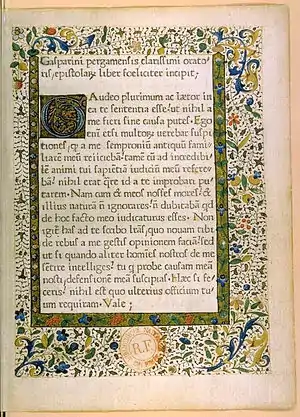 Gasparini pergamensis clarissimi orato
ris, epistolaꝝ liber foeliciter incipit;
GAudeo plurimum ac lætor in
ea te sententia esse, ut nihil a
me fieri sine causa putes. Ego
enī etsi multoꝝ uerebar suspi
tiones, ꝙ a me semproniū antiquū fami
liarē meū reiiciebā, tamē cū ad incredibi
lē animi tui sapientiā iudiciū meū refere
bā, nihil erat qre id a te improbari pu
tarem. Nam cum & meos nosses mores, &
illius naturā nō ignorares, nō dubitabā qd
de hoc facto meo iudicaturus esses. Non
igit has ad te scribo lras, quo nouam tibi
de rebus a me gestis opinionem faciā, sed
ut si quando aliter hoīes nostros de me
sētire intelliges, tu q probe causam meā
nosti, defensionē meā suscipias. Hæc si fe
ceris, nihil est quo ulterius officium tu
um requiram. Vale;
R.F.